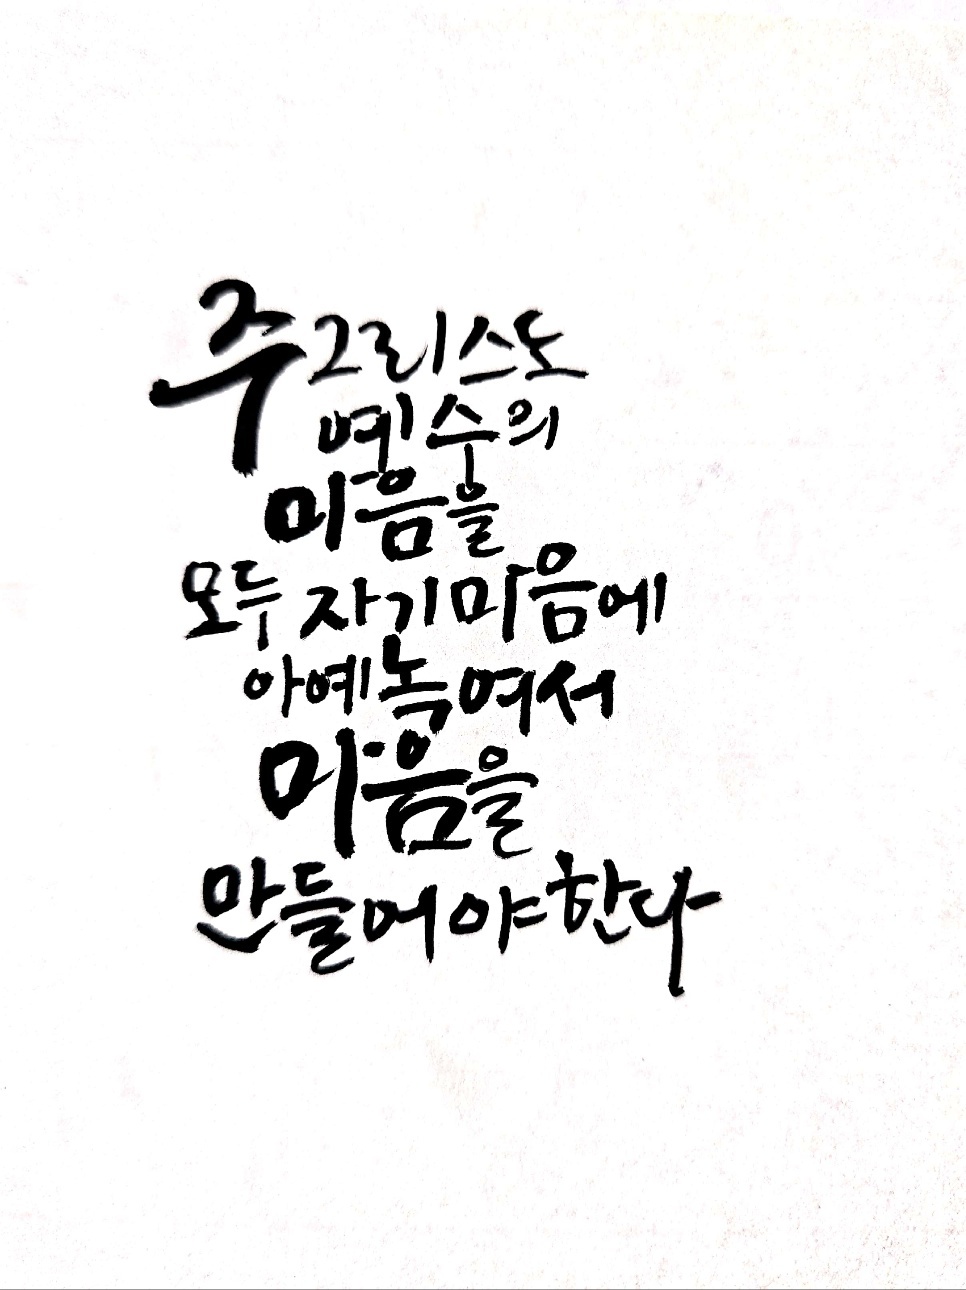 주 그리스도
예수의
마음을
모두 자기 마음에
아예 녹여서
마음을
만들어야 한다